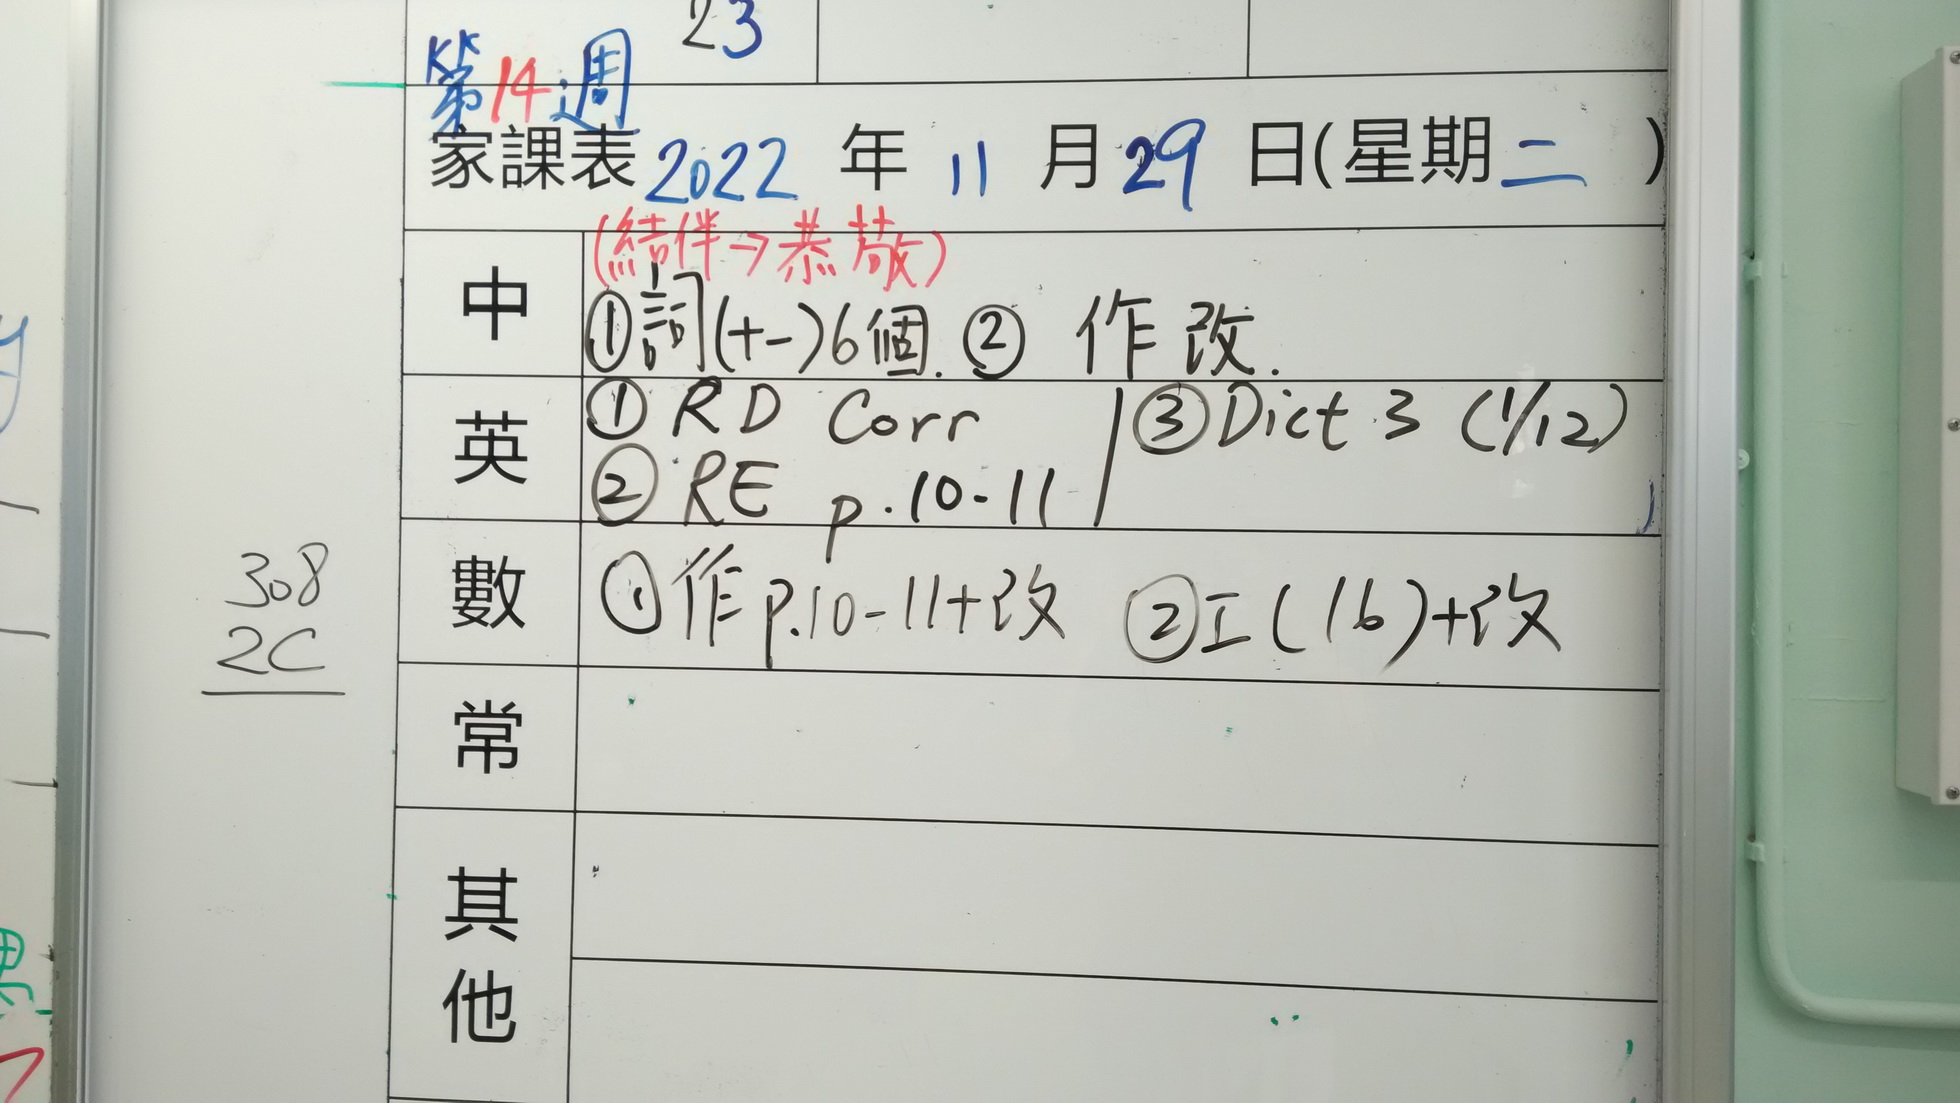 23
第14週
家課表 2022 年 11 月 29 日(星期二 )
(結伴→恭敬)
中 ①詞(十一)6個. ② 作改.
英 ① RD Corr ③ Dict 3 (1/12)
② RE p.10-11
數 ①作p.10-11+改 ②工(16)+改
308
2C
常
其
他